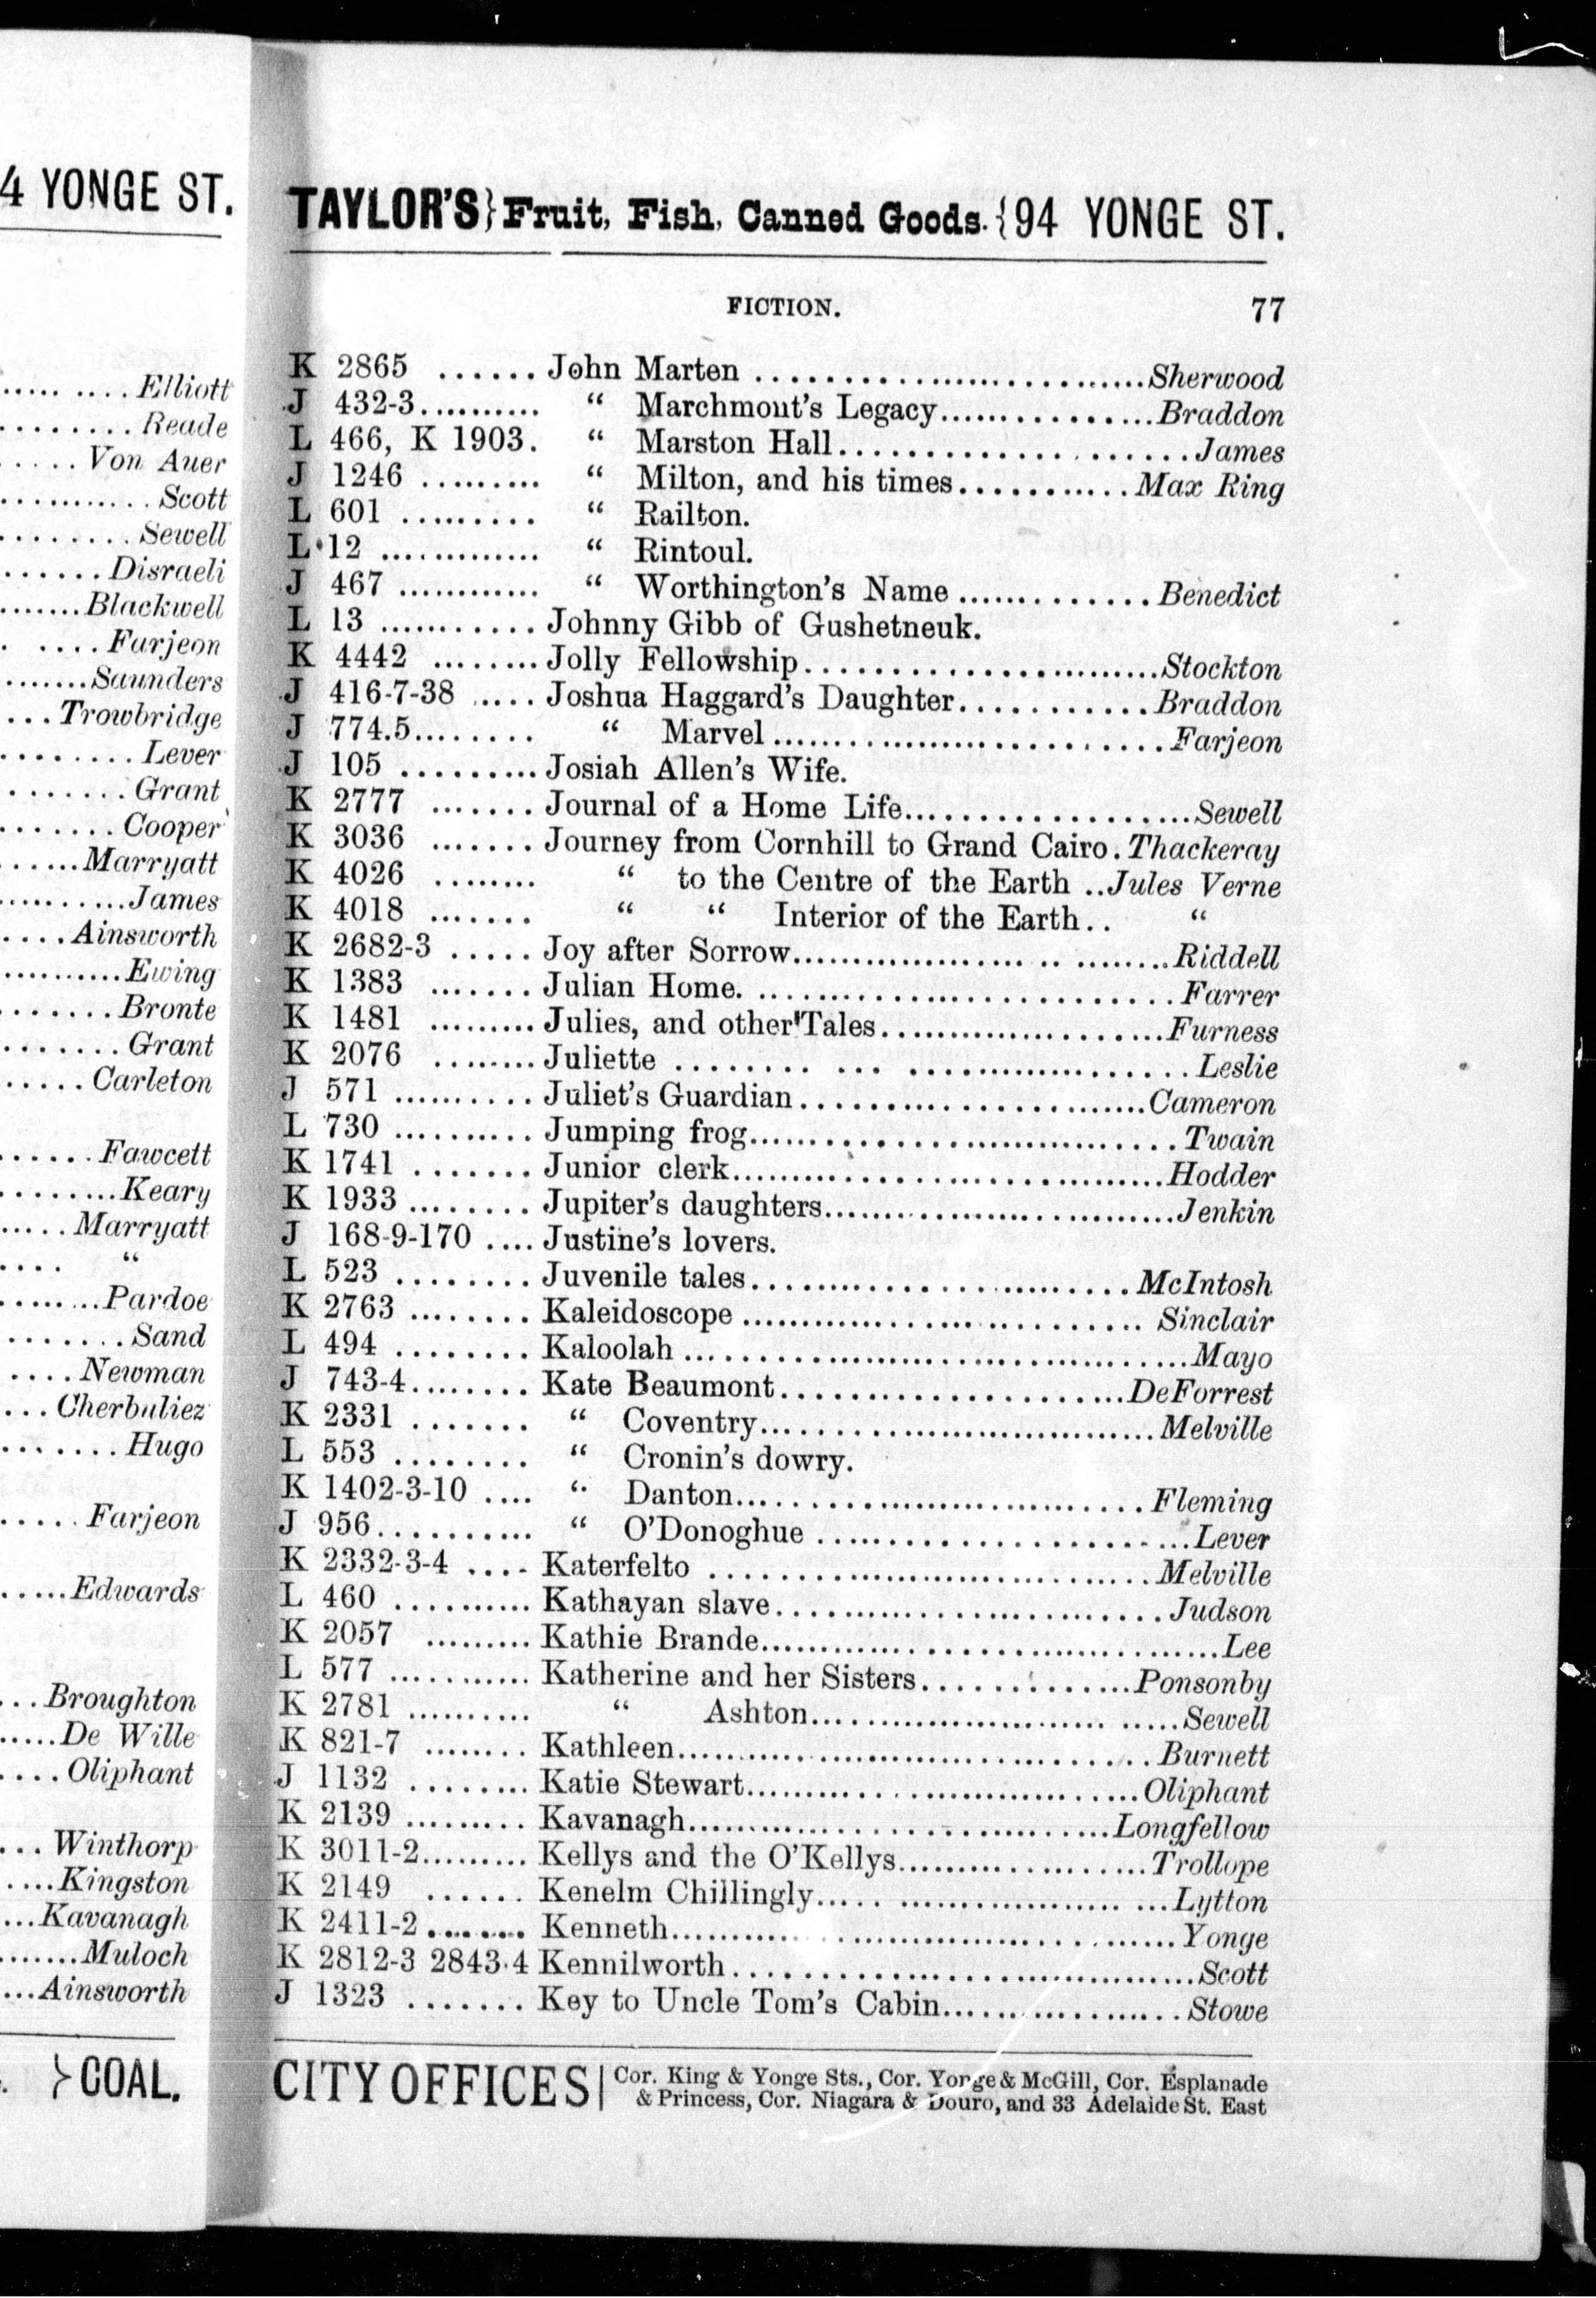 4 YONGE ST.
..... .... Elliott
........ Reade
..... Von Auer
........... Scott
........ Sewell
...... Disraeli
.......Blackwell
. ....Farjeon
.......Saunders
...Trowbridge
........ Lever
........ Grant
....... Cooper
......Marryatt
..........James
....Ainsworth
..........Ewing
.......Bronte
....... Grant
..... Carleton
......Fawcett
.........Keary
.....Marryatt
.... “
........Pardoe
.......Sand
....Newman
...Cherbuliez
.......Hugo
.....Farjeon
.....Edwards
...Broughton
.....De Wille
....Oliphant
...Winthorp
....Kingston
...Kavanagh
.......Muloch
...Ainsworth
. }COAL.
TAYLOR'S}Fruit, Fish, Canned Goods.{94 YONGE ST.
FICTION. 77
K 2865 ...... John Marten ..............................Sherwood
J 432-3.......... “ Marchmont's Legacy.................Braddon
L 466, K 1903. “ Marston Hall........................James
J 1246 ......... “ Milton, and his times...........Max Ring
L 601 ......... “ Railton.
L 12 ............. “ Rintoul.
J 467 ............ “ Worthington's Name .............Benedict
L 13 ........... Johnny Gibb of Gushetneuk.
K 4442 ........Jolly Fellowship..........................Stockton
J 416-7-38 ..... Joshua Haggard's Daughter...........Braddon
J 774.5........ “ Marvel .............................Farjeon
J 105 ..........Josiah Allen's Wife.
K 2777 .......Journal of a Home Life.....................Sewell
K 3036 .......Journey from Cornhill to Grand Cairo.Thackeray
K 4026 ........ “ to the Centre of the Earth ..Jules Verne
K 4018 ....... “ “ Interior of the Earth.. “
K 2682-3 .....Joy after Sorrow............................Riddell
K 1383 .......Julian Home. ...............................Farrer
K 1481 .........Julies, and other Tales.....................Furness
K 2076 .........Juliette ........ ... .....................Leslie
J 571 ..........Juliet's Guardian.........................Cameron
L 730 ..........Jumping frog...............................Twain
K 1741 .......Junior clerk................................Hodder
K 1933 ........Jupiter's daughters..........................Jenkin
J 168-9-170 ....Justine's lovers.
L 523 ........Juvenile tales............................McIntosh
K 2763 ........Kaleidoscope ............................. Sinclair
L 494 ........Kaloolah ....................................Mayo
J 743-4........Kate Beaumont.........................DeForrest
K 2331 ....... “ Coventry.............................Melville
L 553 ........ “ Cronin's dowry.
K 1402-3-10 .... “ Danton..............................Fleming
J 956........... “ O'Donoghue ...........................Lever
K 2332-3-4 ....Katerfelto ................................Melville
L 460 ..........Kathayan slave............................Judson
K 2057 .........Kathie Brande.................................Lee
L 577 ...........Katherine and her Sisters...............Ponsonby
K 2781 .......... “ Ashton......................... .....Sewell
K 821-7 ........Kathleen..................................Burnett
J 1132 ........Katie Stewart............................Oliphant
K 2139 .........Kavanagh..............................Longfellow
K 3011-2.........Kellys and the O'Kellys..................Trollope
K 2149 ......Kenelm Chillingly..... ................ ...Lytton
K 2411-2........Kenneth....................................Yonge
K 2812-3 2843.4 Kennilworth.................................Scott
J 1323 .......Key to Uncle Tom's Cabin..................Stowe
CITY OFFICES| Cor. King & Yonge Sts., Cor. Yorge & McGill, Cor. Esplanade
& Princess, Cor. Niagara & Douro, and 33 Adelaide St. East